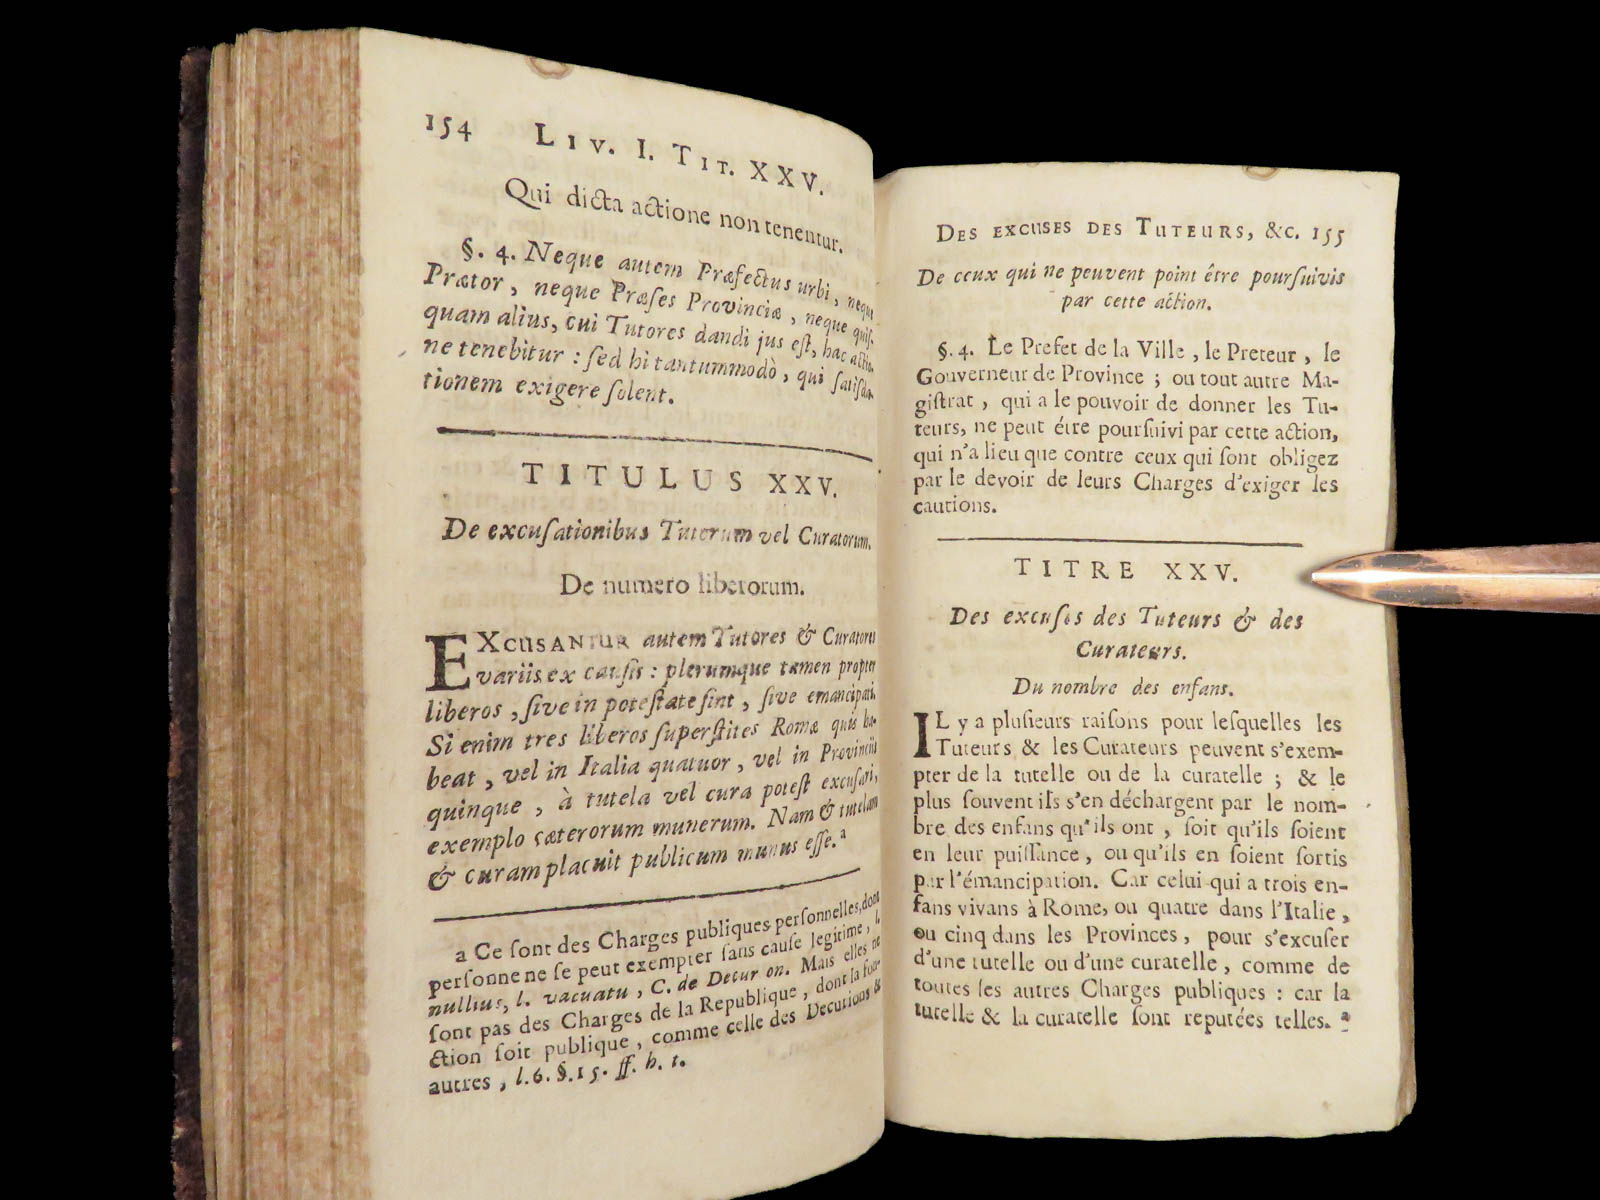 154 LIV. I. TIT. XXV.
Qui dicta actione non tenentur.
§. 4. Neque autem Præfectus urbi, neque
Prætor, neque Præſes Provinciæ, neque quiſ-
quam alius, cui Tutores dandi jus eſt, hac actio-
ne tenebitur : ſed hi tantummodò, qui ſatiſda-
tionem exigere ſolent.
TITULUS XXV.
De excuſationibus Tutorum vel Curatorum.
De numero liberorum.
EXCUSANTUR autem Tutores & Curatores
variis ex cauſis : plerumque tamen propter
liberos, ſive in poteſtate ſint, ſive emancipati.
Si enim tres liberos ſuperſtites Romæ quis ha-
beat, vel in Italia quatuor, vel in Provinciis
quinque, à tutela vel cura poteſt excuſari,
exemplo cæterorum munerum. Nam & tutelam
& curam placuit publicum munus eſſe. a
a Ce ſont des Charges publiques perſonnelles, dont
perſonne ne ſe peut exempter ſans cauſe legitime, l.
nullus, l. vacuatu, C. de Decurion. Mais elles ne
ſont pas des Charges de la Republique, dont la fon-
ction ſoit publique, comme celle des Decurions &
autres, l. 6. §. 15. ff. h. t.
DES EXCUSES DES TUTEURS, &c. 155
De ceux qui ne peuvent point être pourſuivis
par cette action.
§. 4. Le Prefet de la Ville, le Preteur, le
Gouverneur de Province ; ou tout autre Ma-
giſtrat, qui a le pouvoir de donner les Tu-
teurs, ne peut être pourſuivi par cette action,
qui n'a lieu que contre ceux qui ſont obligez
par le devoir de leurs Charges d'exiger les
cautions.
TITRE XXV.
Des excuſes des Tuteurs & des
Curateurs.
Du nombre des enfans.
IL y a pluſieurs raiſons pour leſquelles les
Tuteurs & les Curateurs peuvent s'exem-
pter de la tutelle ou de la curatelle ; & le
plus ſouvent ils s'en déchargent par le nom-
bre des enfans qu'ils ont, ſoit qu'ils ſoient
en leur puiſſance, ou qu'ils en ſoient ſortis
par l'émancipation. Car celui qui a trois en-
fans vivans à Rome, ou quatre dans l'Italie,
ou cinq dans les Provinces, pour s'excuſer
d'une tutelle ou d'une curatelle, comme de
toutes les autres Charges publiques : car la
tutelle & la curatelle ſont reputées telles. a